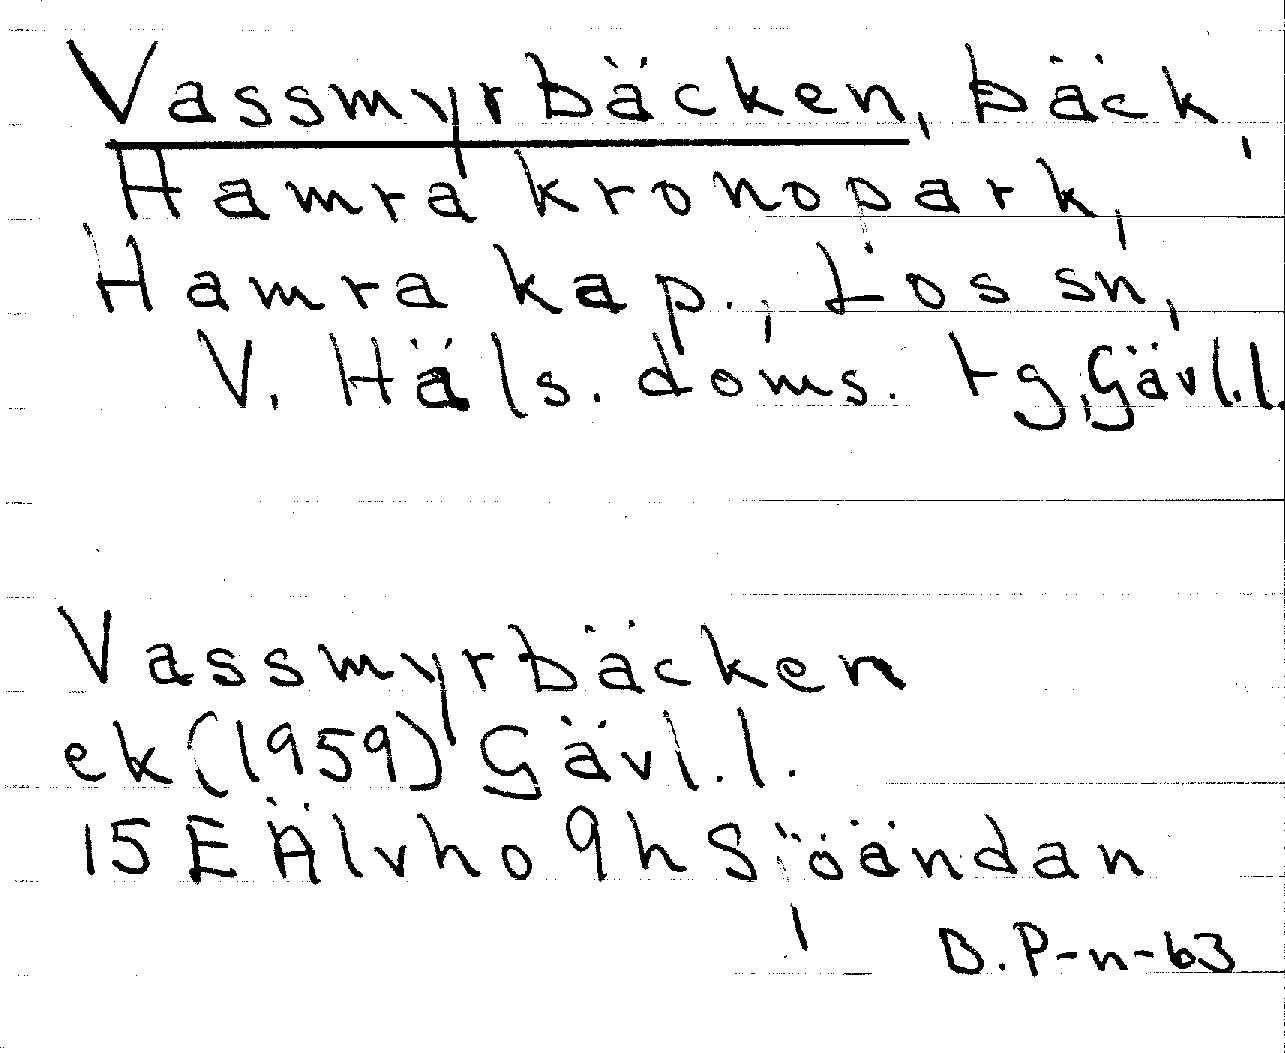 Vassmyrbäcken, bäck,
Hamra kronopark,
Hamra kap., Los sn,
V. Häls. doms. tg, Gävl.l.
Vassmyrbäcken
ek (1959) Gävl.l.
15 E Älvho 9h Sjöändan
D.P-n-63